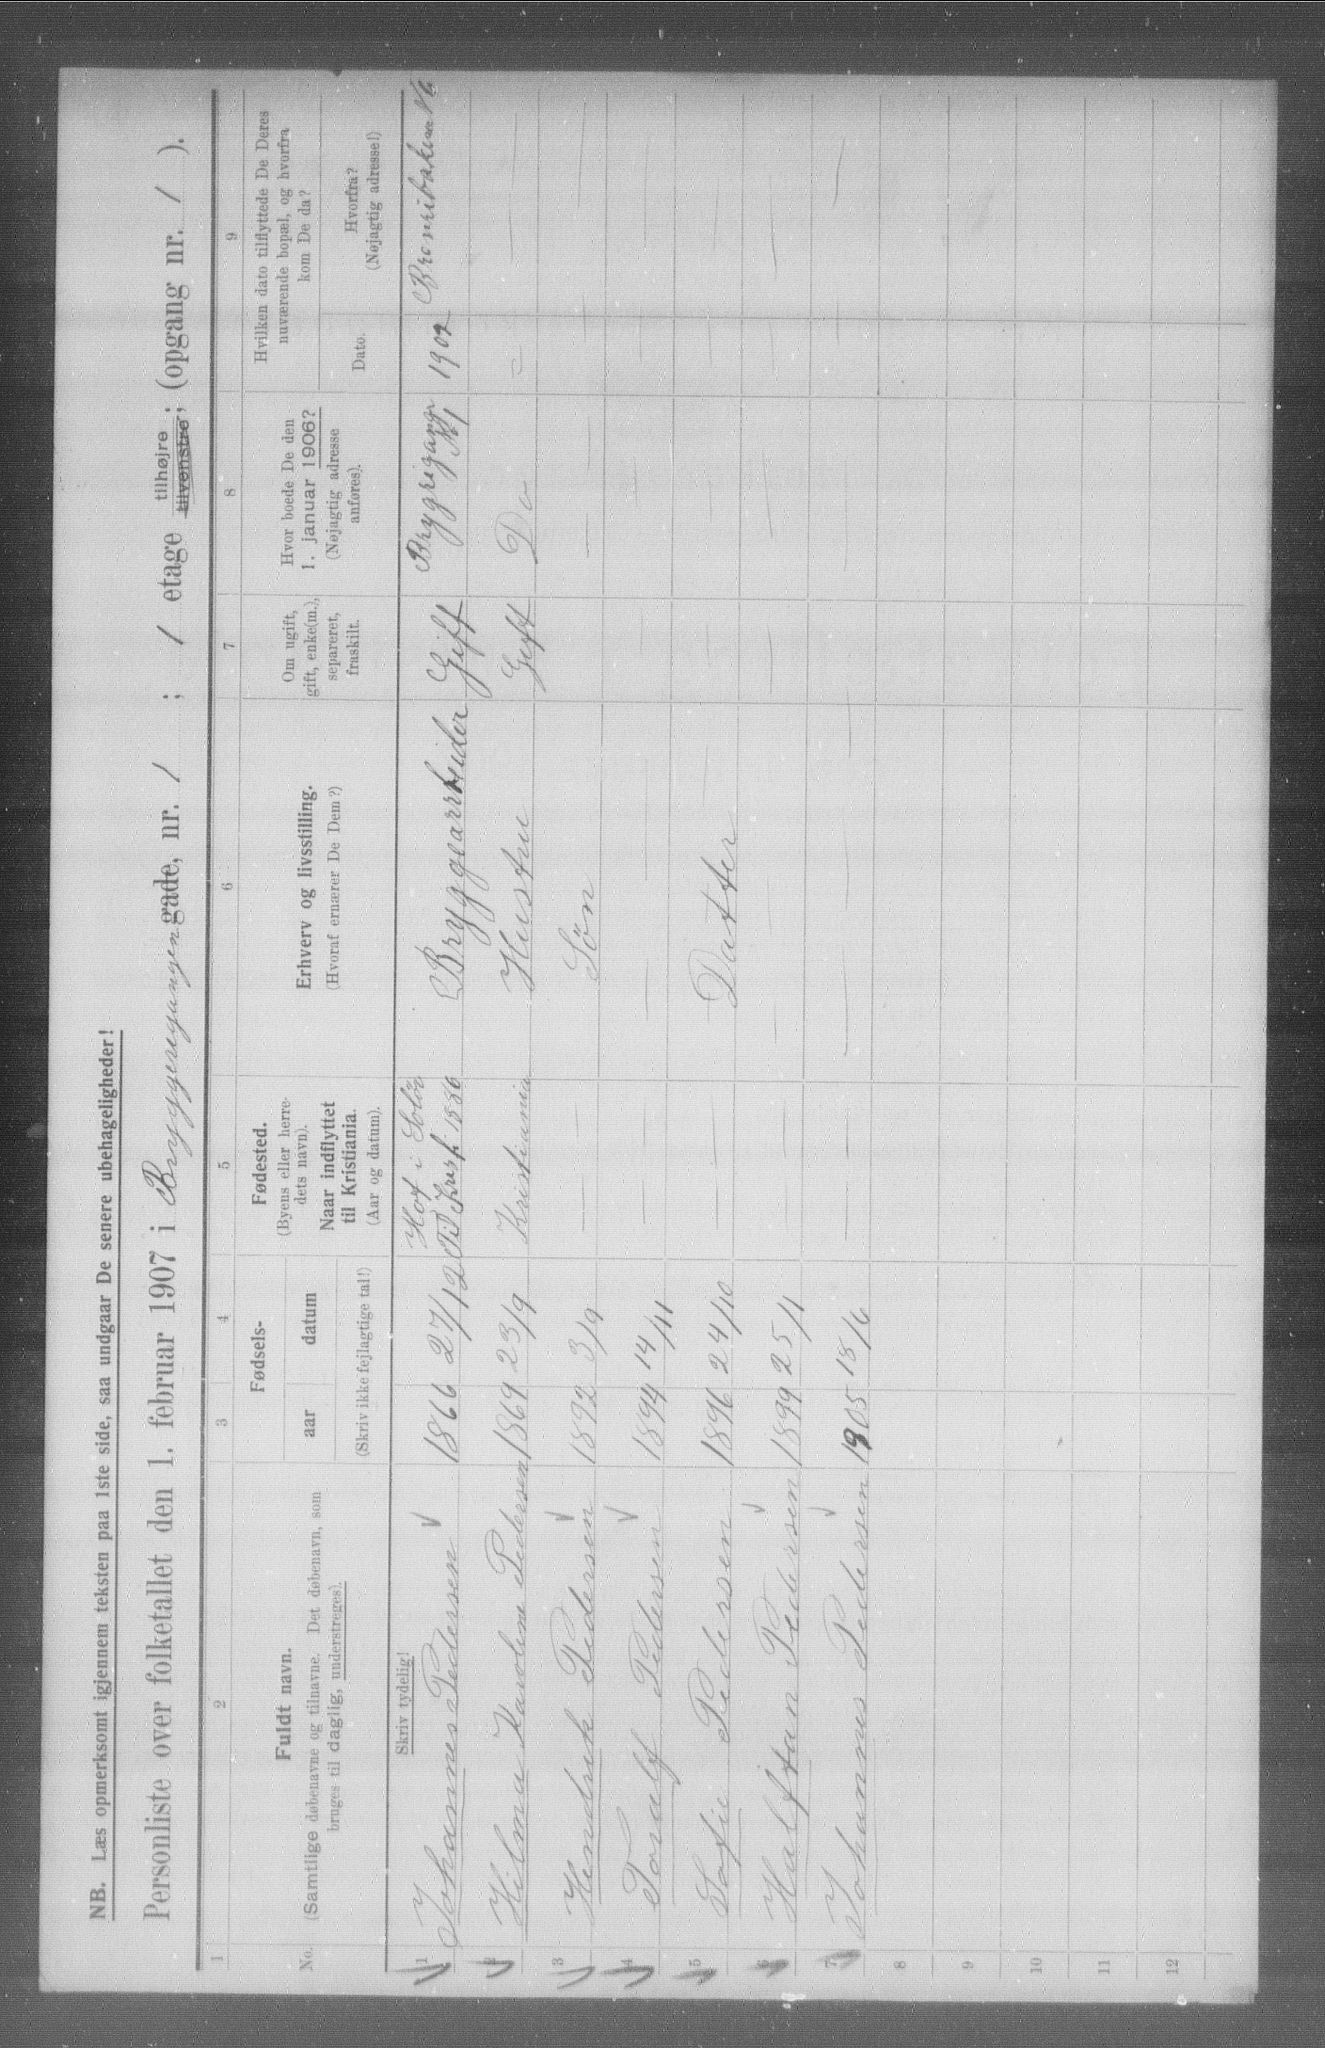 NB. Læs opmerksomt igjennem teksten paa 1ste side, saa undgaar De senere ubehageligheder!
Personliste over folketallet den 1. februar 1907 i Bryggerigangen gade, nr. 1 ; 1 etage tilhøjre tilvenstre; (opgang nr. 1 ).
1 2 3 4 5 6 7 8 9
No.
Fuldt navn.
(Samtlige døbenavne og tilnavne. Det døbenavn, som
bruges til daglig, understreges).
Fødsels-
aar datum
(Skriv ikke fejlagtige tal!)
Fødested.
(Byens eller herre-
dets navn).
Naar indflyttet
til Kristiania.
(Aar og datum).
Erhverv og livsstilling.
(Hvoraf ernærer De Dem?)
Om ugift,
gift, enke(m.),
separeret,
fraskilt.
Hvor boede De den
1. januar 1906?
(Nøjagtig adresse
anføres).
Hvilken dato tilflyttede De Deres
nuværende bopæl, og hvorfra
kom De da?
Dato.
Hvorfra?
(Nøjagtig adresse!)
Skriv tydelig!
1 Johannes Pedersen 1866 27/12 Hof i Solør Til Krist. 1886 Bryggearbeider Gift Bryggerigange N 1 1902
2 Hilma Karoline Pedersen 1869 23/9 Kristiania Hustru Gift Do
3 Hendrik Pedersen 1892 3/9 — Søn — —
4 Toralf Pedersen 1894 14/11 — — — —
5 Sofie Pedersen 1896 24/10 — Datter — — —
6 Halfdan Pedersen 1899 25/1 — — — — — —
7 Johannes Pedersen 1905 18/6 — — — — — —
8
9
10
11
12